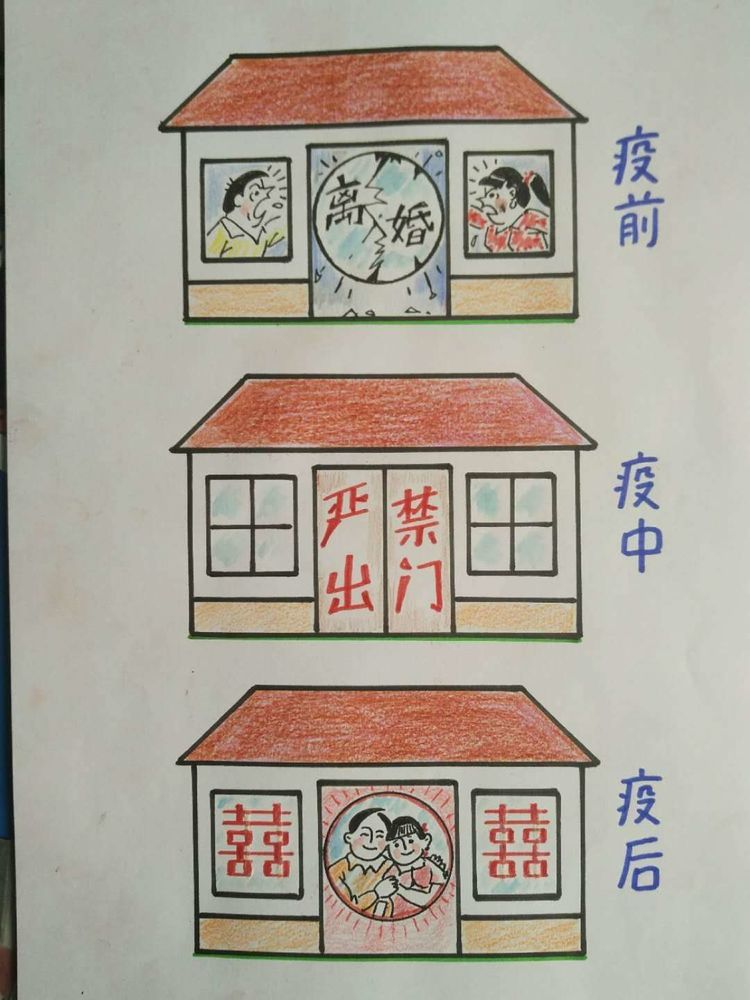 离婚
疫前
严禁
出门
疫中
囍
囍
疫后